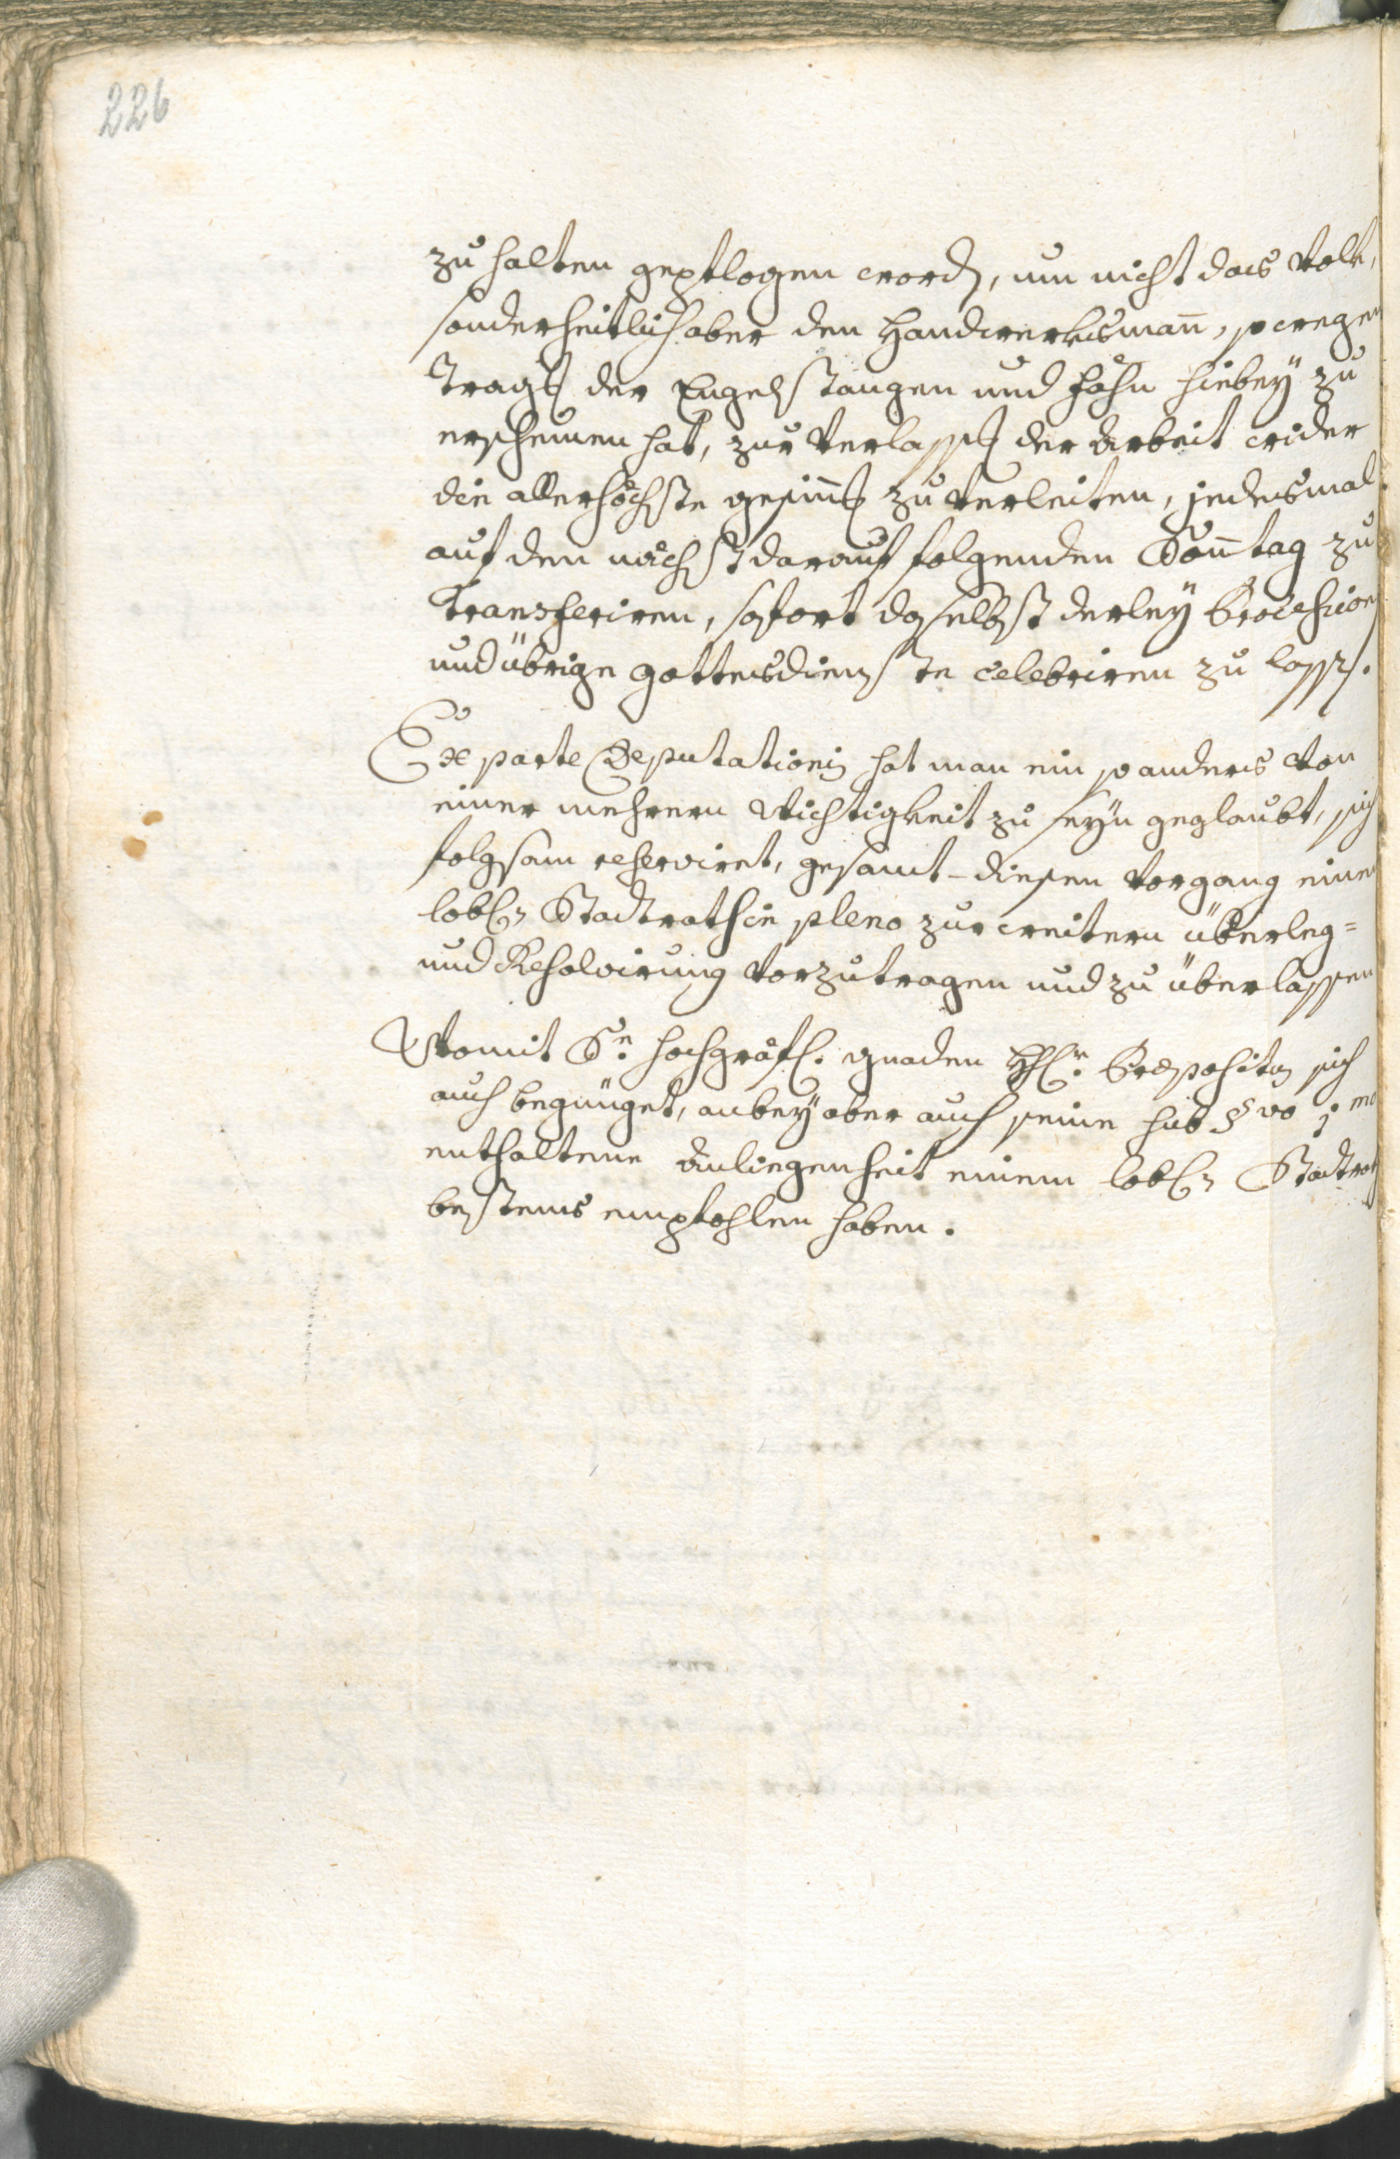 226
zu halten gepflogen word, um nicht das Volk,
sonderheitlich aber den Handwerksmann, so wegen
Trags der Engelstangen und Fähn hiebeÿ zu
erscheinen hat, zur Verlassg der Arbeit wider
die allerhöchste gesinng zu verleiten, jedesmal
auf den nächst darauf folgenden Sonntag zu
transferiren, sofort daselbst derleÿ Procession
und übrige gottesdienste celebriren zu lassen.
Ex parte Deputationis hat man ein so anders von
einer mehrern Wichtigkeit zu seÿn geglaubt, sich
folgsam reserviret, gesamt-diesen Vorgang einem
lobl. Stadtrath in pleno zur weitern überleg=
und Resolvirung vorzutragen und zu überlassen
Womit Sr. hochgräfl. gnaden Hr. Præpositus sich
auch begnüget, anbeÿ aber auch seine sub §vo 1mo
enthaltene Anliegenheit einem lobl. Stadtrath
bestens empfohlen haben.